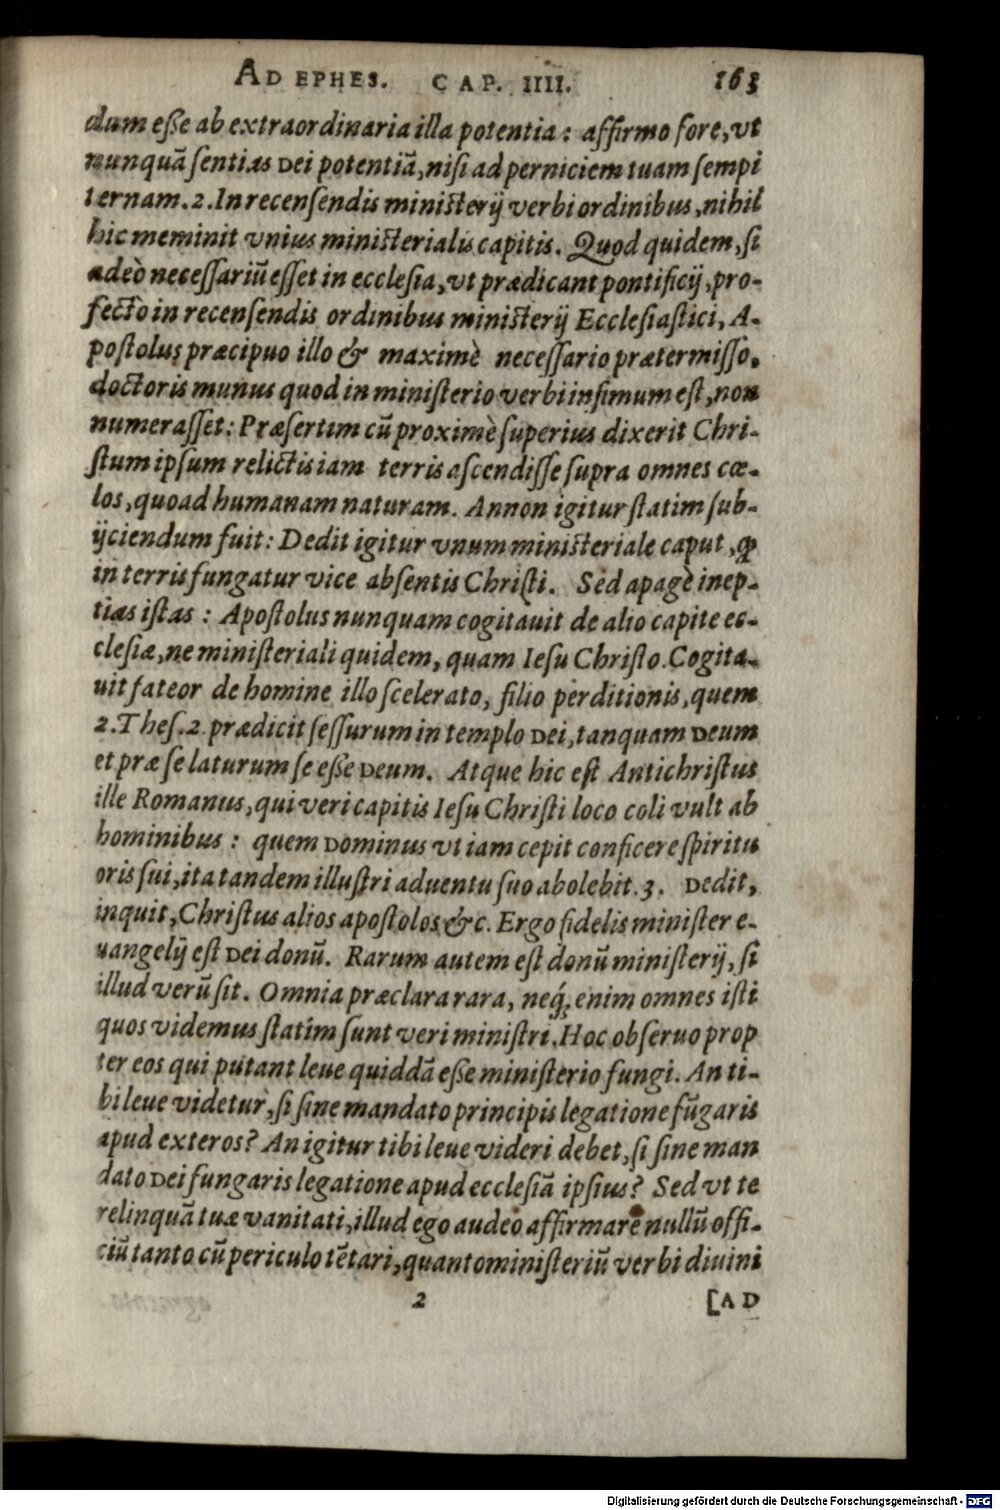 AD EPHES. CAP. IIII. 163
dum eſſe ab extraordinaria illa potentia: affirmo fore, vt
nunquā ſentias DEI potentiā, niſi ad perniciem tuam ſempi
ternam. 2. In recenſendis miniſterij verbi ordinibus, nihil
hic meminit vnius miniſterialis capitis. Quod quidem, ſi
adeò neceſſariū eſſet in eccleſia, vt prædicant pontificij, pro-
fectò in recenſendis ordinibus miniſterij Eccleſiaſtici, A-
poſtolus præcipuo illo & maximè neceſſario prætermiſſo,
doctoris munus quod in miniſterio verbi infimum eſt, non
numeraſſet: Præſertim cū proximè ſuperius dixerit Chri-
ſtum ipſum relictis iam terris aſcendiſſe ſupra omnes cœ-
los, quoad humanam naturam. Annon igitur ſtatim ſub-
ijciendum fuit: Dedit igitur vnum miniſteriale caput, ꝙ
in terris fungatur vice abſentis Chriſti. Sed apagè inep-
tias iſtas: Apoſtolus nunquam cogitauit de alio capite ec-
cleſiæ, ne miniſteriali quidem, quam Ieſu Chriſto. Cogita-
uit fateor de homine illo ſcelerato, filio perditionis, quem
2. Theſ. 2. prædicit ſeſſurum in templo DEI, tanquam DEUM
et præ ſe laturum ſe eſſe DEUM. Atque hic eſt Antichriſtus
ille Romanus, qui veri capitis Ieſu Chriſti loco coli vult ab
hominibus: quem DOMINUS vt iam cepit conficere ſpiritu
oris ſui, ita tandem illuſtri aduentu ſuo abolebit. 3. Dedit,
inquit, Chriſtus alios apoſtolos &c. Ergo fidelis miniſter e-
uangelij eſt DEI donū. Rarum autem eſt donū miniſterij, ſi
illud verū ſit. Omnia præclara rara, neq́; enim omnes iſti
quos videmus ſtatim ſunt veri miniſtri. Hoc obſeruo prop
ter eos qui putant leue quiddā eſſe miniſterio fungi. An ti-
bi leue videtur, ſi ſine mandato principis legatione fūgaris
apud exteros? An igitur tibi leue videri debet, ſi ſine man
dato DEI fungaris legatione apud eccleſiā ipſius? Sed vt te
relinquā tuæ vanitati, illud ego audeo affirmare nullū offi-
ciū tanto cū periculo tētari, quanto miniſteriū verbi diuini
2 [AD
Digitalisierung gefördert durch die Deutsche Forschungsgemeinschaft - DFG